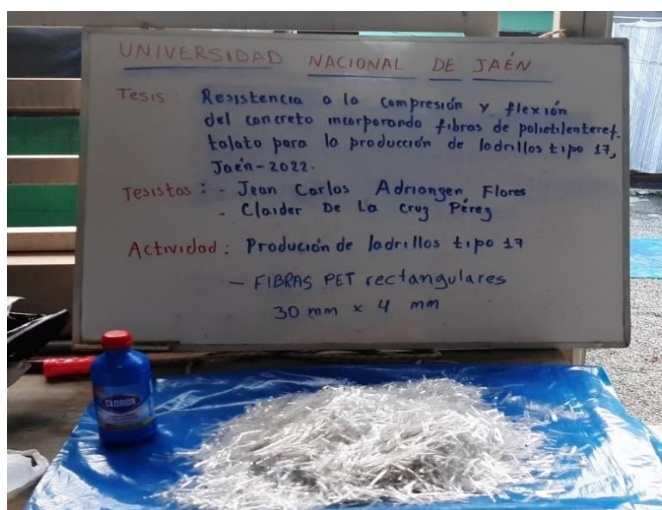 UNIVERSIDAD NACIONAL DE JAÉN
Tesis: Resistencia a la compresión y flexión
del concreto incorporando fibras de polietilenteref-
talato para la producción de ladrillos tipo 17,
Jaén-2022.
Tesistas: - Jean Carlos Adriangen Flores
- Claider De La Cruz Pérez
Actividad: Produción de ladrillos tipo 17
- FIBRAS PET rectangulares
30 mm x 4 mm
CLOROX